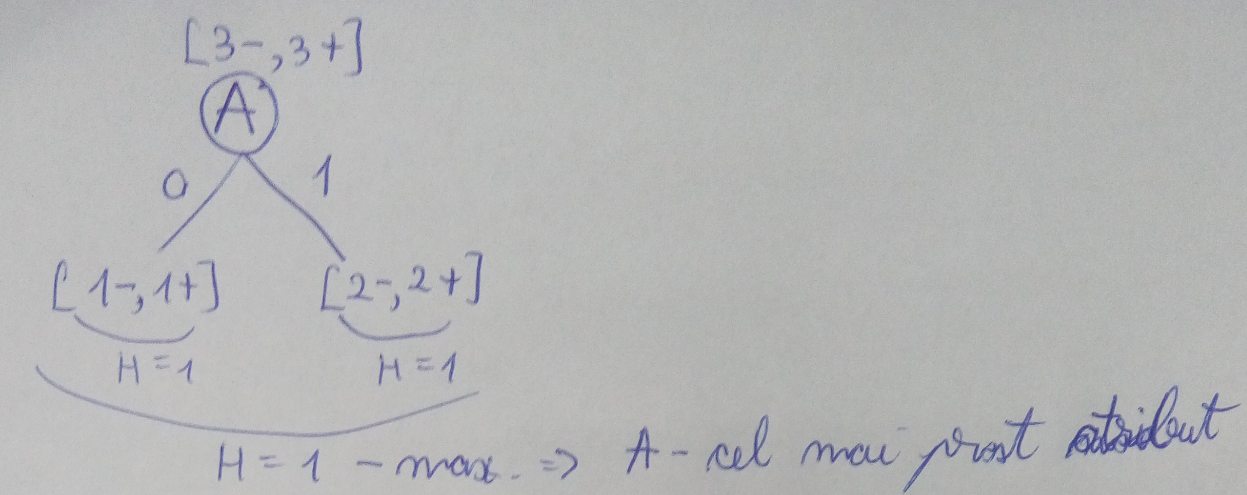 [3-,3+]
A
0 1
[1-,1+] [2-,2+]
H=1 H=1
H=1 - max. => A - cel mai prost atribut